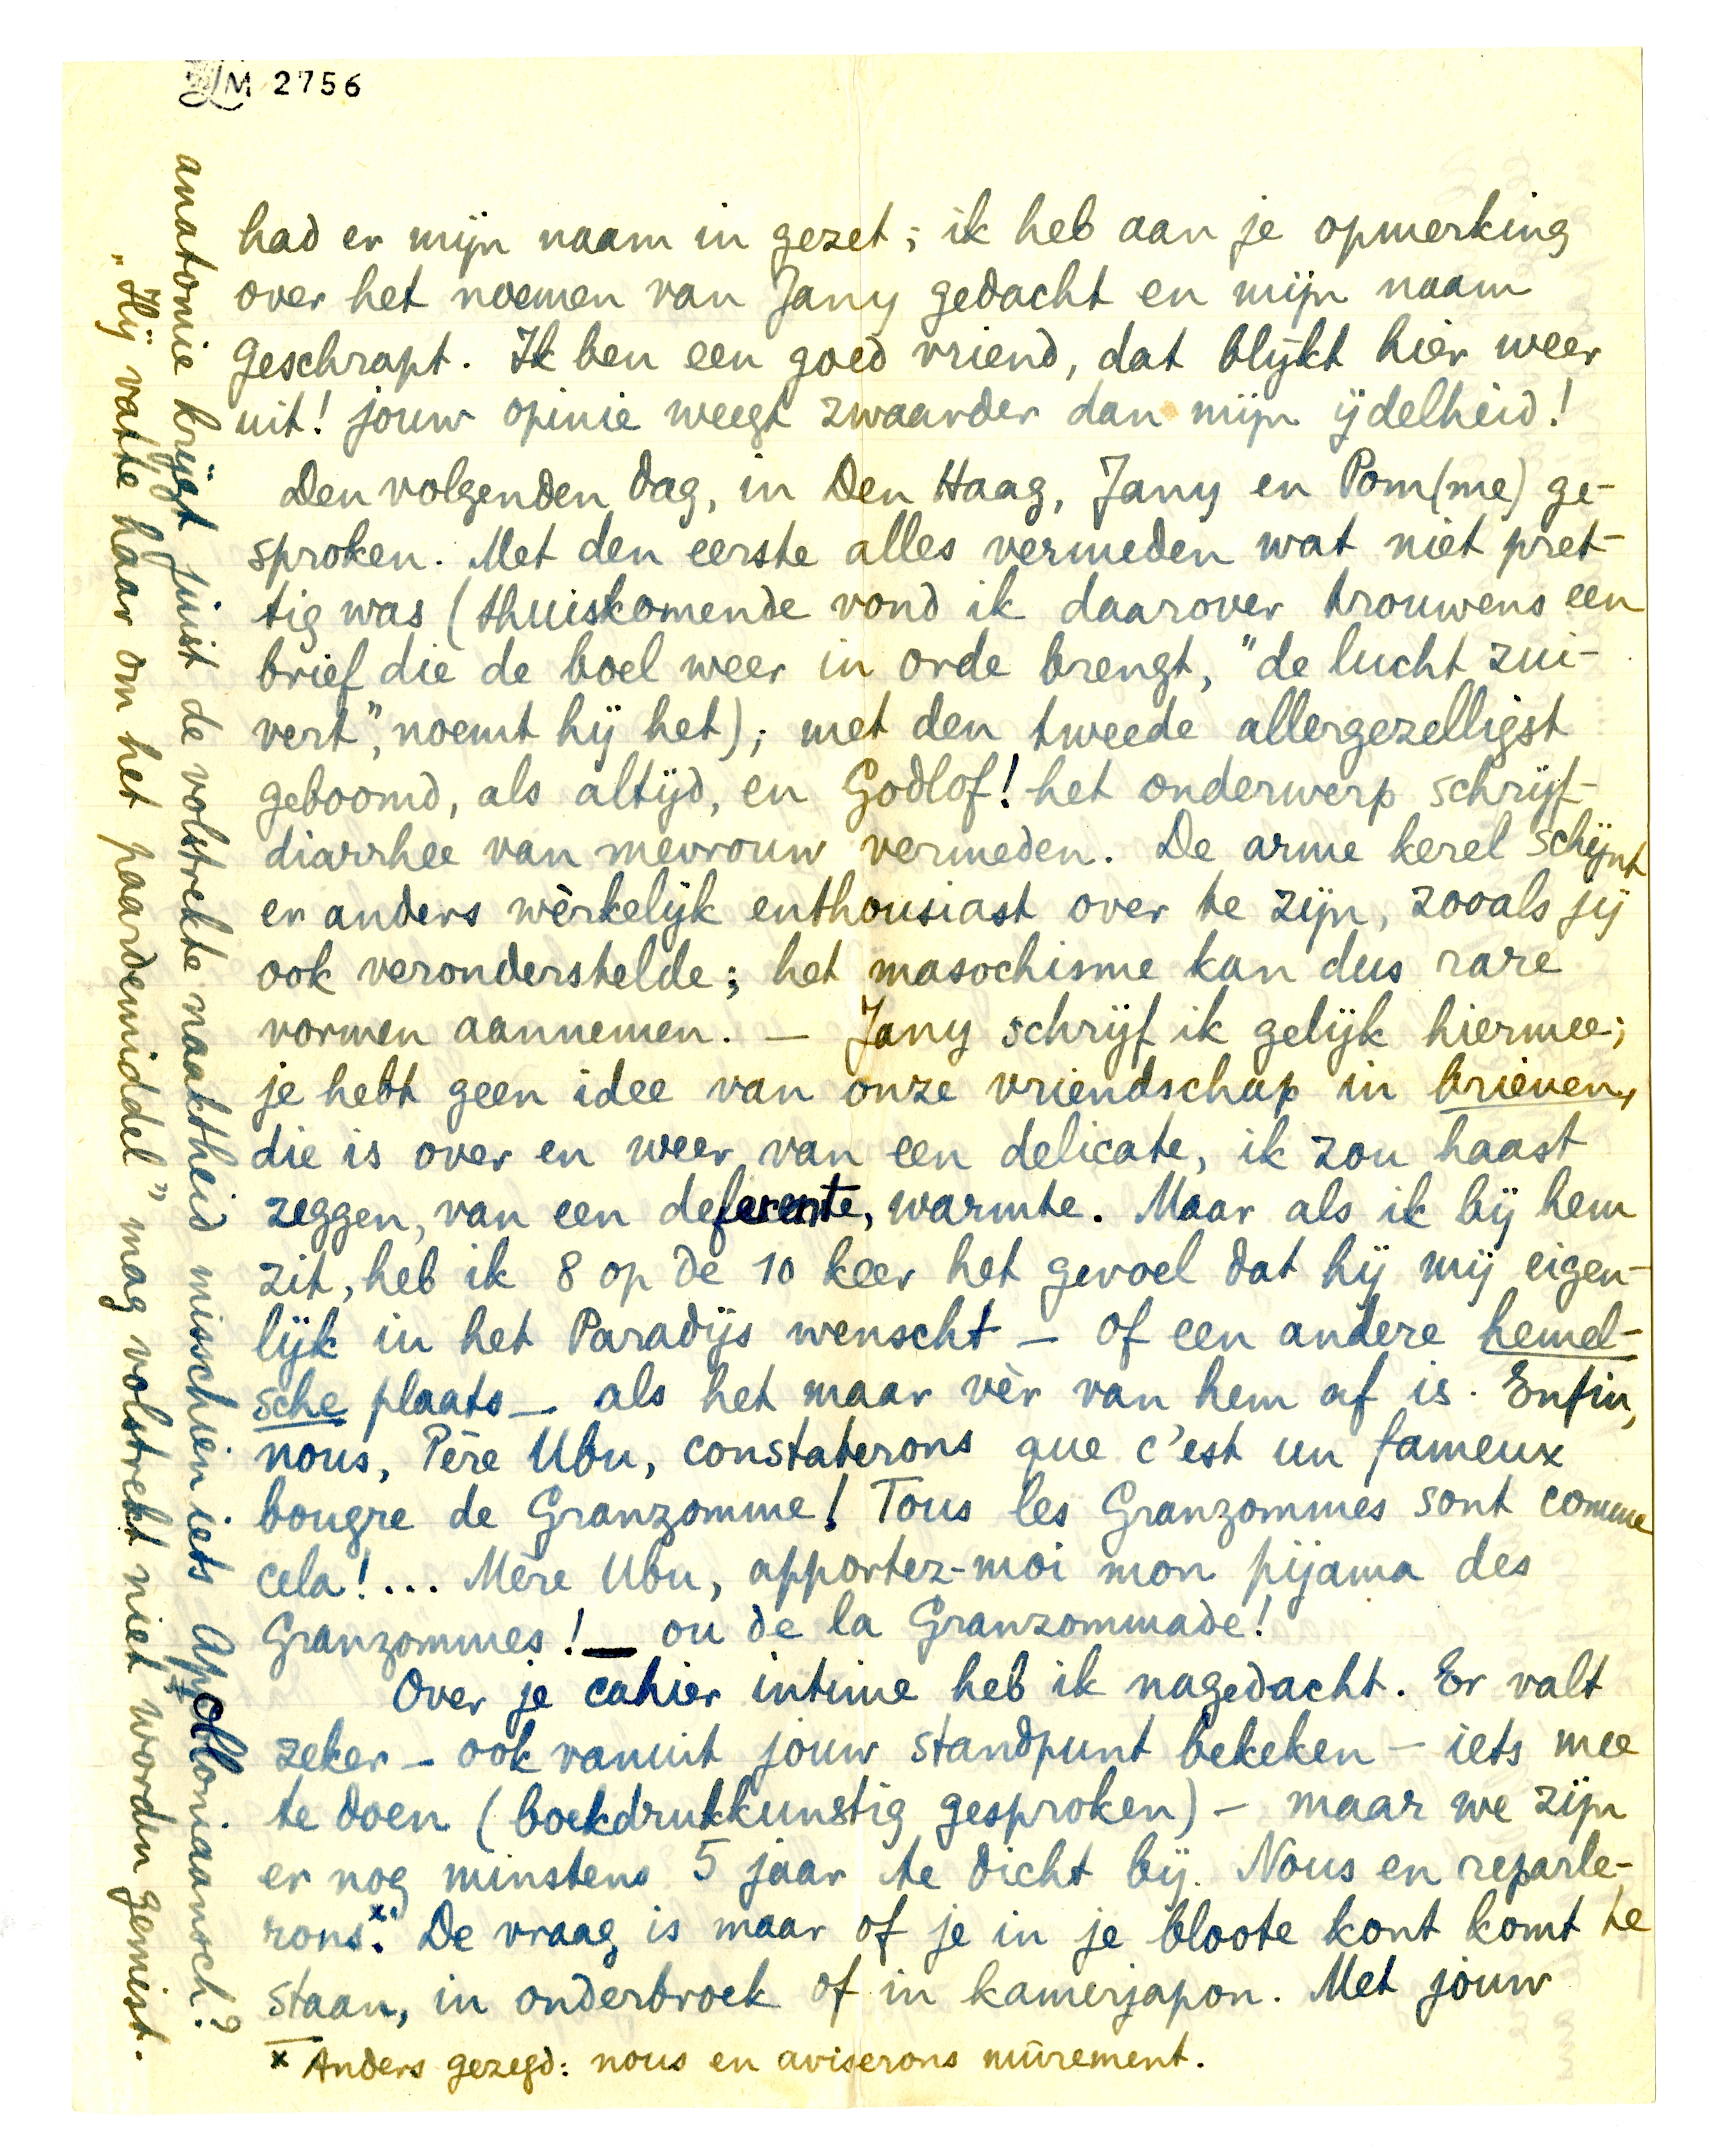 LM 2756
had er mijn naam in gezet; ik heb aan je opmerking
over het noemen van Jany gedacht en mijn naam
geschrapt. Ik ben een goed vriend, dat blijkt hier weer
uit! jouw opinie weegt zwaarder dan mijn ijdelheid!
Den volgenden dag, in Den Haag, Jany en Pom(me) ge-
sproken. Met den eerste alles vermeden wat niet pret-
tig was (thuiskomende vond ik daarover trouwens een
brief die de boel weer in orde brengt, "de lucht zui-
vert", noemt hij het); met den tweede allergezelligst
geboomd, als altijd, en Godlof! het onderwerp schrijf-
diarrhee van mevrouw vermeden. De arme kerel schijnt
er anders wèrkelijk enthousiast over te zijn, zooals jij
ook veronderstelde; het masochisme kan dus rare
vormen aannemen. — Jany schrijf ik gelijk hiermee;
je hebt geen idee van onze vriendschap in brieven,
die is over en weer van een delicate, ik zou haast
zeggen, van een deferente, warmte. Maar als ik bij hem
zit, heb ik 8 op de 10 keer het gevoel dat hij mij eigen-
lijk in het Paradijs wenscht — of een andere hemel-
sche plaats — als het maar vèr van hem af is. Enfin,
nous, Père Ubu, constaterons que c'est un fameux
bougre de Granzomme! Tous les Granzommes sont comme
cela!... Mère Ubu, apportez-moi mon pijama des
Granzommes! — ou de la Granzommade!
Over je cahier intime heb ik nagedacht. Er valt
zeker — ook vanuit jouw standpunt bekeken — iets mee
te doen (boekdrukkunstig gesproken) — maar we zijn
er nog minstens 5 jaar te dicht bij. Nous en reparle-
rons.x De vraag is maar of je in je bloote kont komt te
staan, in onderbroek of in kamerjapon. Met jouw
x Anders gezegd: nous en aviserons mûrement.
anatomie krijgt juist de volstrekte naaktheid misschien iets Apolloniaansch?
„Hij vatte haar om het paardemiddel" mag volstrekt niet worden gemist.